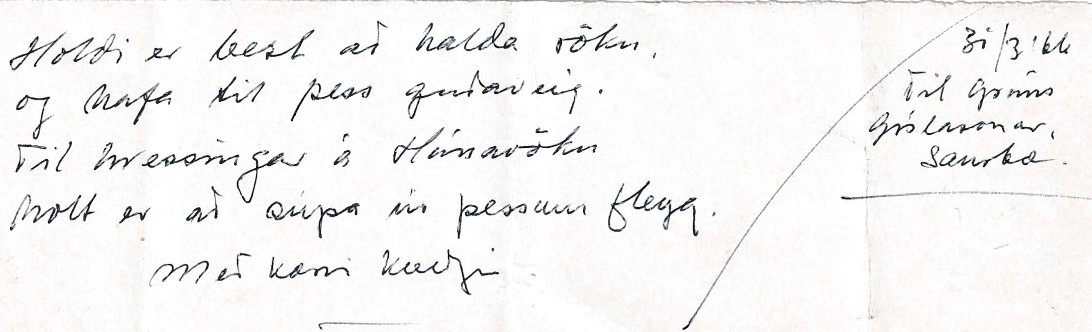 Holdi er best að halda röku,
og hafa til þess guðaveig.
Til hressingar á Húnavöku
hollt er að súpa úr þessum fleyg.
Með kærri kveðju
31/3 '66
Til Gríms
Gíslasonar,
Saurbæ.